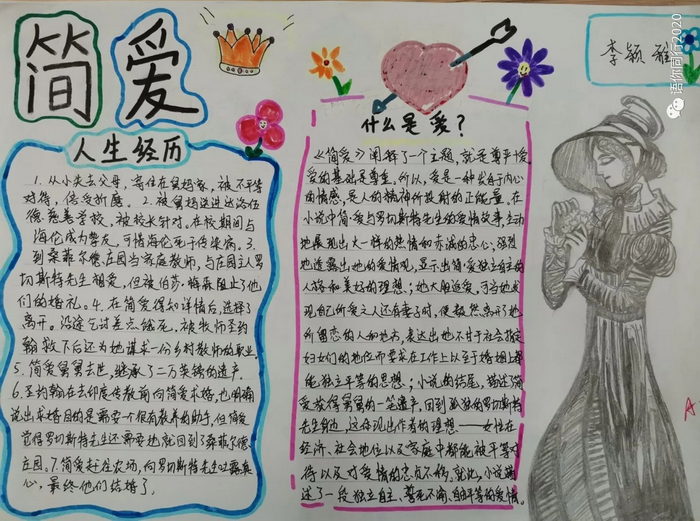 简爱
人生经历
1. 从小失去父母，寄住在舅妈家，被不平等
对待，倍受折磨。2. 被舅妈送进达洛伍
德慈善学校，被校长针对。在校期间与
海伦成为挚友，可惜海伦死于传染病。3.
到桑菲尔德庄园当家庭教师，与庄园主罗
切斯特相爱，但被伯莎·梅森阻止了他
们的婚礼。4. 在简爱得知详情后，选择了
离开。沿途乞讨差点饿死，被牧师圣约
翰救下后还为她谋求一份乡村教师的职业。
5. 简爱舅舅去世，继承了二万英镑的遗产。
6. 圣约翰在去印度传教前向简爱求婚，也明确
说出求婚目的是需要一个很有教养的助手，但简爱
觉得罗切斯特先生还需要她就回到了桑菲尔德
庄园。7. 简爱赶往农场，向罗切斯特先生吐露真
心，最终他们结婚了。
什么是爱？
《简爱》阐释了一个主题，就是尊严+爱，
爱的基础是尊重。所以，爱是一种发自于内心
的情感，是人的精神所投射的正能量。在
小说中简·爱与罗切斯特先生的爱情故事，生动
地展现出火一样的热情和赤诚的忠心，强烈
地透露出她的爱情观，显示出简·爱独立自主的
人格和美好的理想；她大胆追爱，可当她发
现自己所爱之人还有妻子时，便毅然离开了她
所留恋的人和地方，表达出她不甘于社会指定
妇女们的地位而要求在工作上以至于婚姻上都
能独立平等的思想；小说的结尾，描述简
爱获得舅舅的一笔遗产，回到孤独的罗切斯特
先生身边，这体现出作者的理想——女性在
经济、社会地位以及家庭中都能被平等对
待以及对爱情的忠贞不移。就此，小说描
述了一段独立自主、誓死不渝、自由平等的爱情。
李颖雅
语你同行2020
A